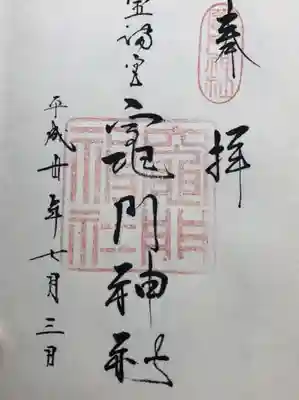 奉拝
宝満宮
竈門神社
平成廿年七月三日